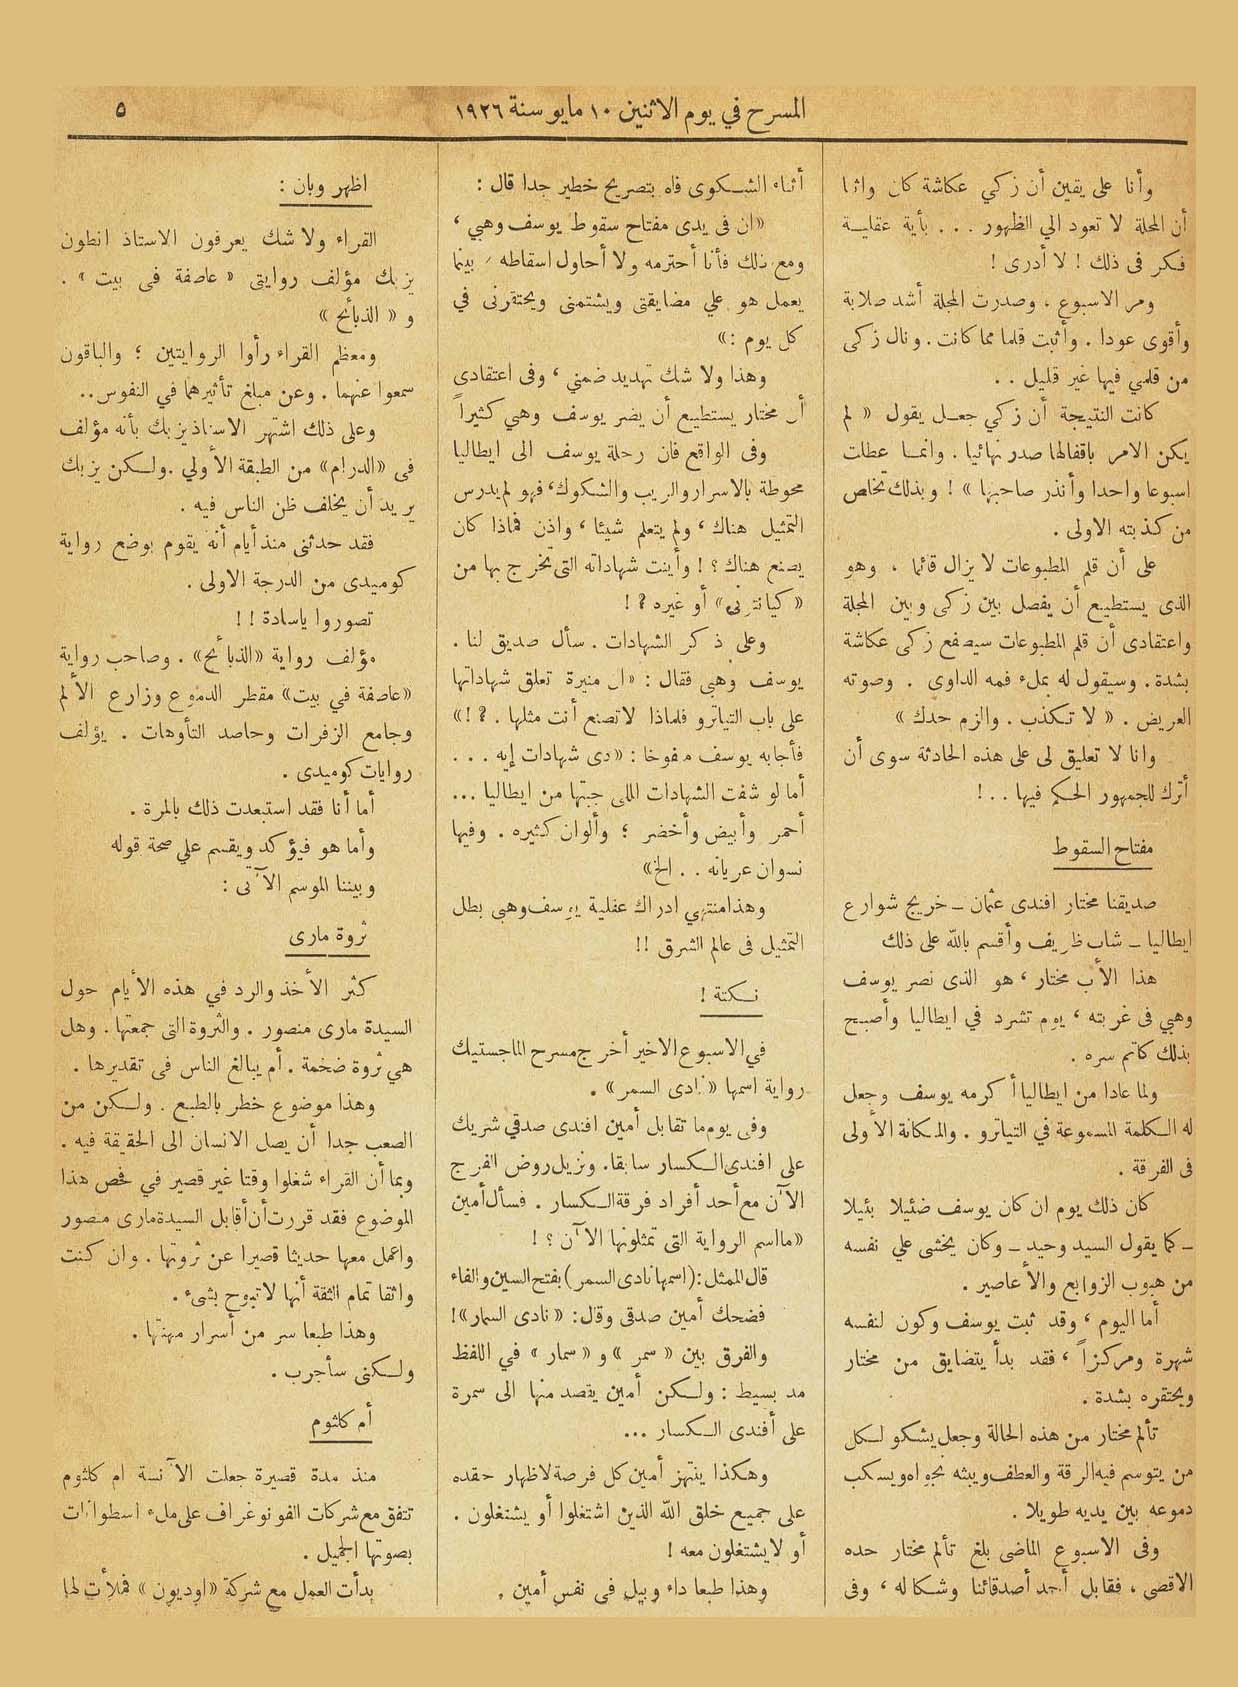 المسرح في يوم الاثنين ١٠ مايو سنة ١٩٢٦
٥
وأنا على يقين أن زكي عكاشة كان واثقا
أن المجلة لا تعود الي الظهور . . . بأية عقليـة
فكر فى ذلك ! لا أدرى !
ومر الاسبوع ، وصدرت المجلة أشد صلابة
وأقوى عودا . وأثبت قلما مما كانت . ونال زكى
من قلمي فيها غير قليل . .
كانت النتيجة أن زكي جعـل يقول « لم
يكن الامر باقفالها صدر نهائيا . وانمـا عطلت
اسبوعا واحدا وأنذر صاحبها » ! وبذلك تخلص
من كذبته الاولى .
على أن قلم المطبوعات لا يزال قائما ، وهو
الذى يستطيع أن يفصل بين زكى وبين المجلة
واعتقادى أن قلم المطبوعات سيصفع زكى عكاشة
بشدة . وسيقول له بملء فمه الداوي . وصوته
العريض . « لا تكذب . والزم حدك »
وانا لا تعليق لى على هذه الحادثة سوى أن
أترك للجمهور الحكم فيها . . !
مفتاح السقوط
صديقنا مختار افندى عثمان – خريج شوارع
ايطاليا – شاب ظريف وأقسم بالله على ذلك
هذا الأب مختار ، هو الذى نصر يوسف
وهبي فى غربته ، يوم تشرد في ايطاليا وأصبح
بذلك كاتم سره .
ولما عادا من ايطاليا أكرمه يوسف وجعل
له الكلمة المسموعة في التياترو . والمكانة الأولى
فى الفرقة .
كان ذلك يوم ان كان يوسف ضئيلا بئيلا
– كما يقول السيد وحيد – وكان يخشى علي نفسه
من هبوب الزوابع والأعاصير .
أما اليوم ، وقد ثبت يوسف وكون لنفسه
شهرة ومركزاً ، فقد بدأ يتضايق من مختار
ويحتقره بشدة .
تألم مختار من هذه الحالة وجعل يشكو لكل
من يتوسم فيه الرقة والعطف ويبثه نجواه ويسكب
دموعه بين يديه طويلا .
وفى الاسبوع الماضى بلغ تألم مختار حده
الاقصى ، فقابل أحد أصدقائنا وشكا له ، وفى
أثناء الشكوى فاه بتصريح خطير جدا قال :
«ان فى يدى مفتاح سقوط يوسف وهبي ،
ومع ذلك فأنا أحترمه ولا أحاول اسقاطه ، بينما
يعمل هو علي مضايقتى ويشتمنى ويحتقرنى في
كل يوم :»
وهذا ولا شك تهديد ضمني ، وفى اعتقادى
أن مختار يستطيع أن يضر يوسف وهبي كثيراً
وفى الواقع فان رحلة يوسف الى ايطاليا
محوطة بالاسرار والريب والشكوك ، فهو لم يدرس
التمثيل هناك ، ولم يتعلم شيئا ، واذن فماذا كان
يصنع هناك ؟ ! وأينت شهاداته التى تخرج بها من
« كيانتونى» أو غيره ؟ !
وعلى ذكر الشهادات . سأل صديق لنا .
يوسف وهبى فقال : «ان منيرة تعلق شهاداتها
على باب التياترو فلماذا لا تصنع أنت مثلها . ؟ !»
فأجابه يوسف منفوخا : «دى شهادات إيه . . .
أما لو شفت الشهادات اللى جبتها من ايطاليا ...
أحمر وأبيض وأخضر ؛ وألوان كثيره . وفيها
نسوان عريانه . . الخ»
وهذا منتهى ادراك عقلية يوسف وهبى بطل
التمثيل فى عالم الشرق !!
نكتة !
في الاسبوع الاخير أخرج مسرح الماجستيك
رواية اسمها « نادى السمر » .
وفى يوم ما تقابل أمين افندى صدقي شريك
على افندى الكسار سابقا . ونزيل روض الفرج
الآن مع أحد أفراد فرقة الكسار . فسأل أمين
«ما اسم الرواية التى تمثلونها الآن ؟ !
قال الممثل : (اسمها نادى السمر ) بفتح السين والفاء
فضحك أمين صدقى وقال : « نادى السمار »!
والفرق بين « سمر » و « سمار » في اللفظ
مد بسيط : ولكن أمين يقصد منها الى سمرة
على أفندى الكسار ...
وهكذا ينتهز أمين كل فرصة لاظهار حقده
على جميع خلق الله الذين اشتغلوا أو يشتغلون .
أو لا يشتغلون معه !
وهذا طبعا داء وبيل فى نفس أمين .
اظهر وبان :
القراء ولا شك يعرفون الاستاذ انطون
يزبك مؤلف روايتى « عاصفة فى بيت » .
و « الذبأئح »
ومعظم القراء رأوا الروايتين ؛ والباقون
سمعوا عنهما . وعن مبلغ تأثيرهما في النفوس..
وعلى ذلك اشتهر الاستاذ يزبك بأنه مؤلف
فى «الدرام» من الطبقة الأولي . ولكن يزبك
يريد أن يخلف ظن الناس فيه .
فقد حدثنى منذ أيام أنه يقوم بوضع رواية
كوميدى من الدرجة الاولى .
تصوروا ياسادة ! !
مؤلف رواية «الذبائح» . وصاحب رواية
«عاصفة في بيت» مقطر الدموع وزارع الألم
وجامع الزفرات وحاصد التأوهات . يؤلف
روايات كوميدى .
أما أنا فقد استبعدت ذلك بالمرة .
وأما هو فيؤكد ويقسم علي صحة قوله
وبيننا الموسم الآتى :
ثروة مارى
كثر الأخذ والرد في هذه الأيام حول
السيدة مارى منصور . والثروة التى جمعتها . وهل
هي ثروة ضخمة . أم يبالغ الناس فى تقديرها .
وهذا موضوع خطر بالطبع . ولكن من
الصعب جدا أن يصل الانسان الى الحقيقة فيه .
وبما أن القراء شغلوا وقتا غير قصير في فحص هذا
الموضوع فقد قررت أن أقابل السيدة مارى منصور
واعمل معها حديثا قصيرا عن ثروتها . وان كنت
واثقا تمام الثقة أنها لا تبوح بشىء .
وهذا طبعا سر من أسرار مهنتها .
ولكنى سأجرب .
أم كلثوم
منذ مدة قصيرة جعلت الآنسة ام كلثوم
تتفق مع شركات الفونوغراف على ملء اسطوانات
بصوتها الجميل .
بدأت العمل مع شركة «اوديون» فملأت لها